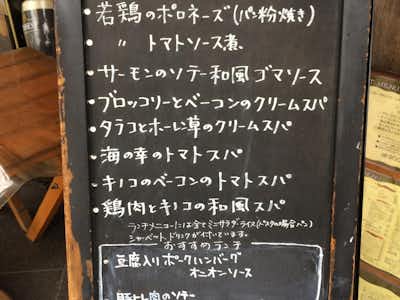 ・若鶏のポロネーズ(パン粉焼き)
・ 〃 トマトソース煮.
・サーモンのソテー和風ゴマソース
・ブロッコリーとベーコンのクリームスパ
・タラコとホーレン草のクリームスパ
・海の幸のトマトスパ
・キノコのベーコンのトマトスパ
・鶏肉とキノコの和風スパ
ランチメニューには全てミニサラダ・ライス(パスタの場合パン)
シャーベット、ドリンクが付いています。
おすすめランチ
・豆腐入りポークハンバーグ
オニオンソース